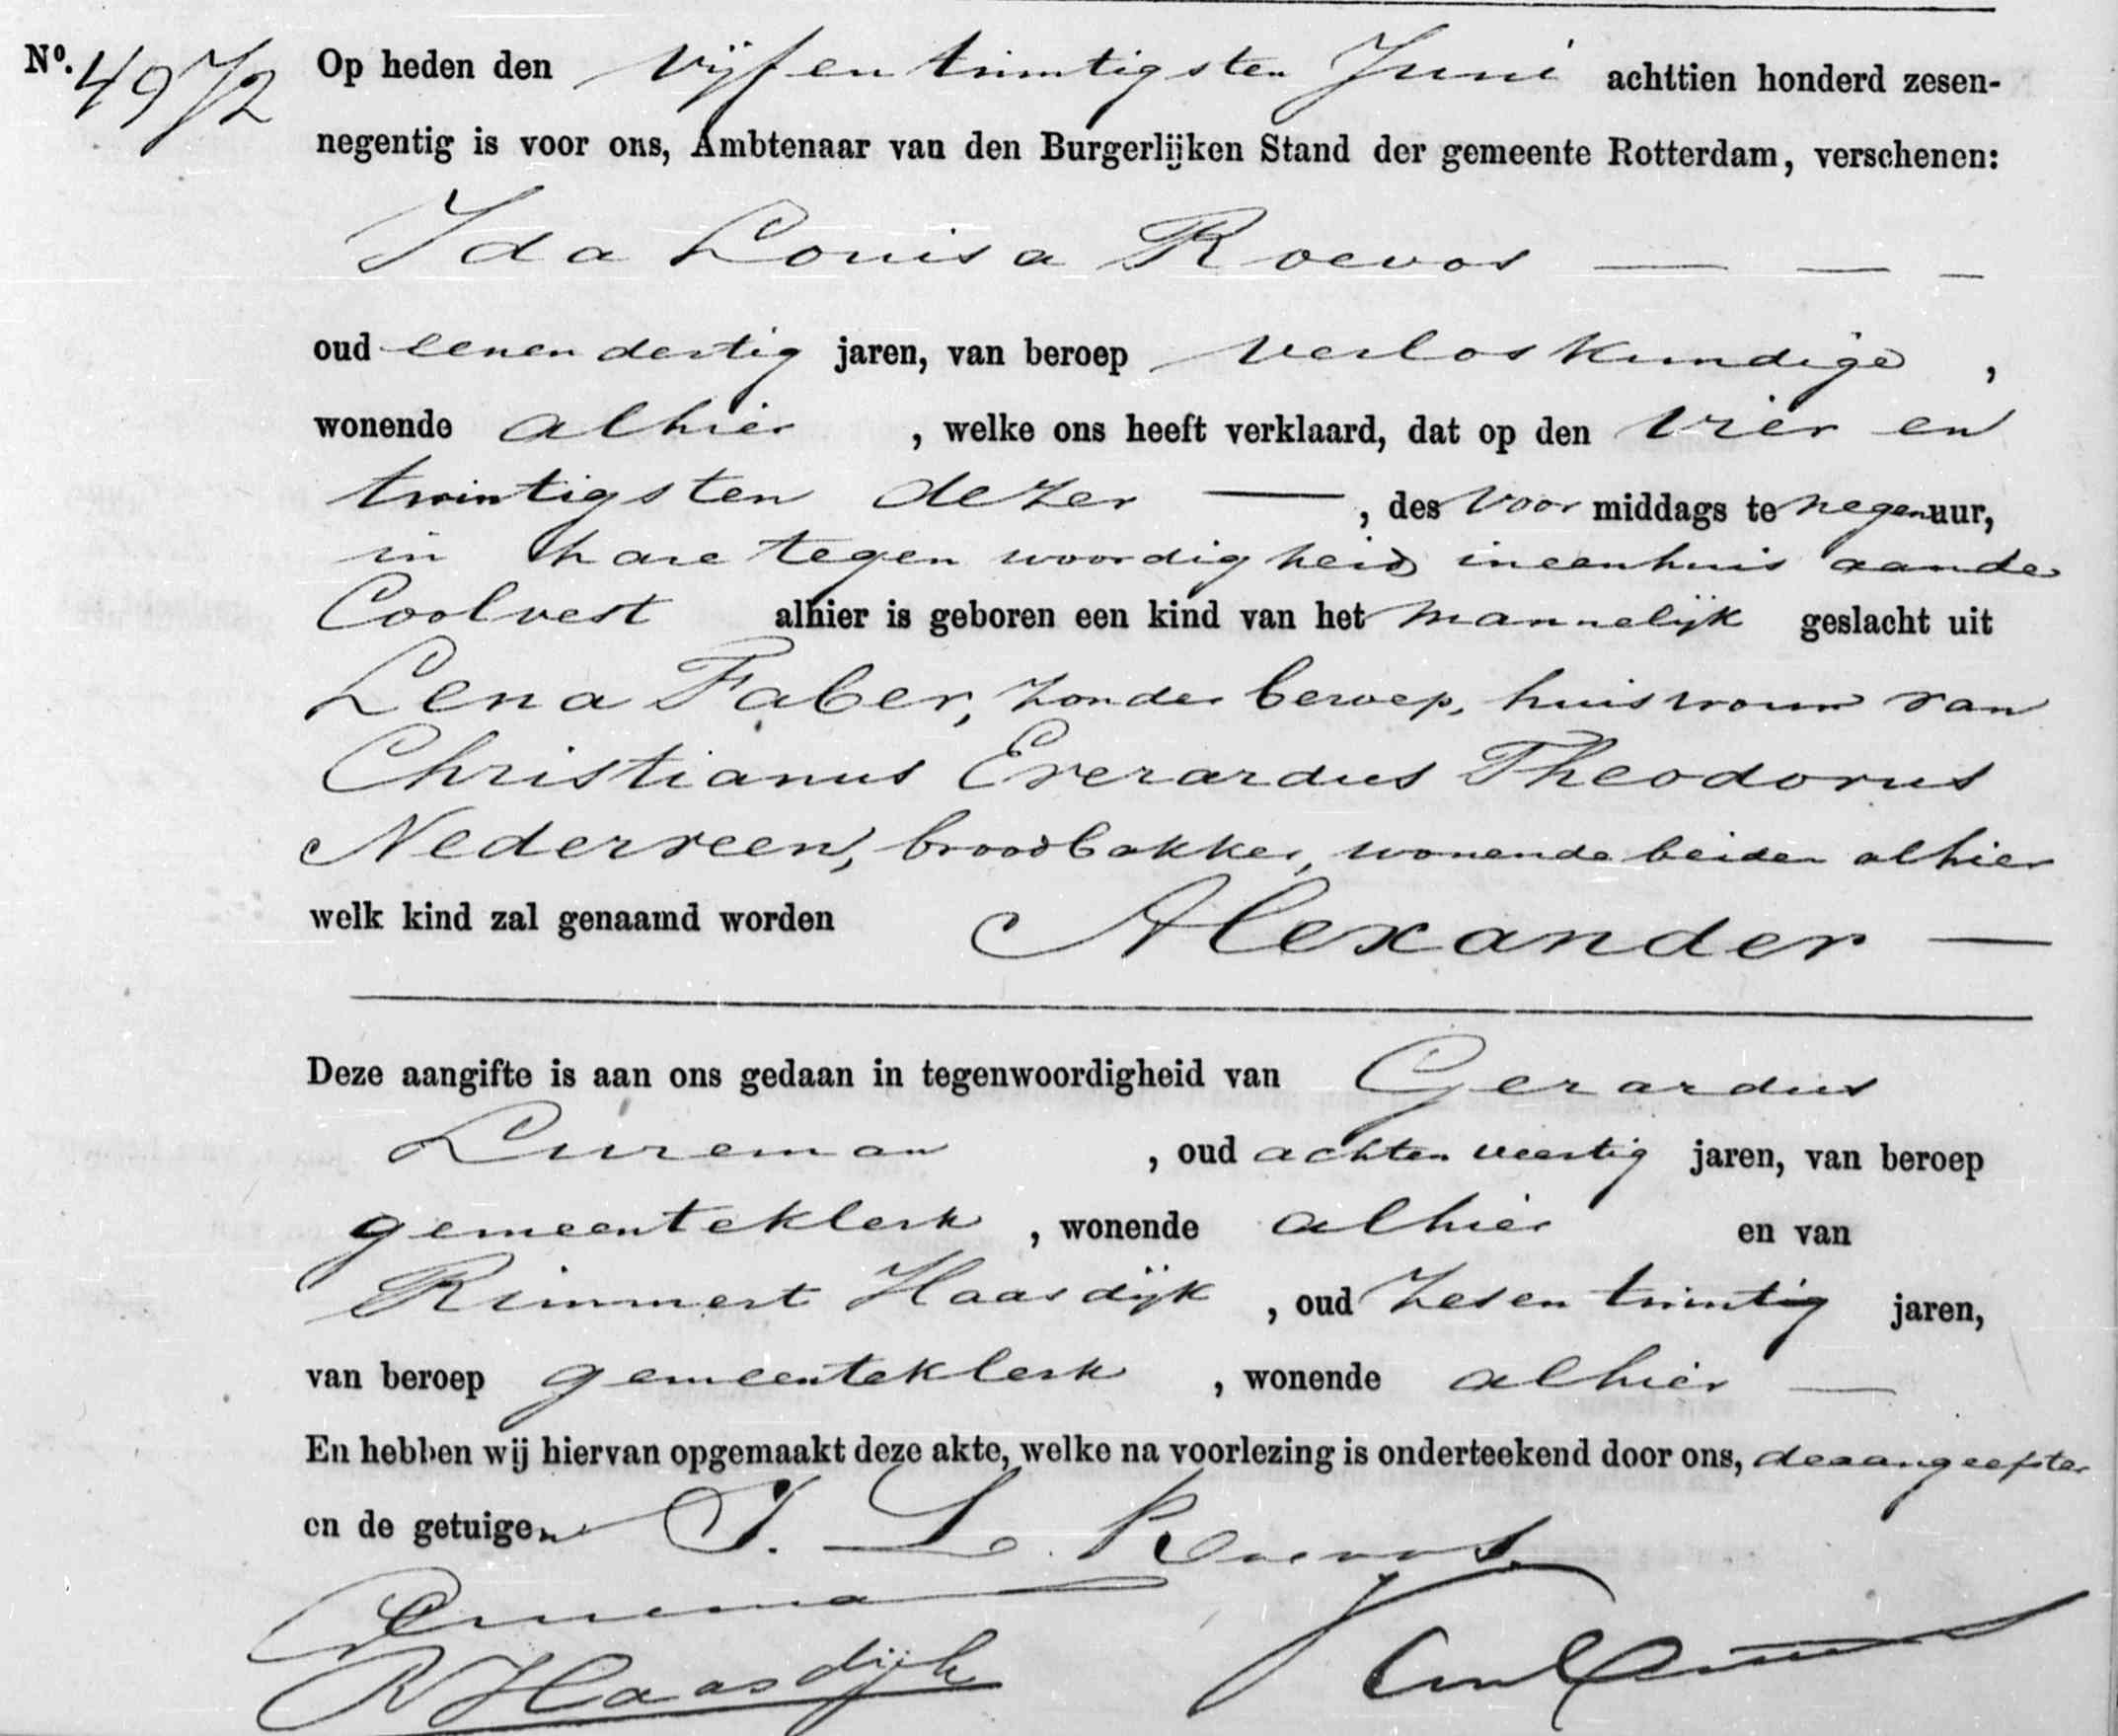 Nº. 4972
Op heden den vijf en twintigsten Juni achttien honderd zesen-
negentig is voor ons, Ambtenaar van den Burgerlijken Stand der gemeente Rotterdam, verschenen:
Ida Louisa Roevos
oud eenendertig jaren, van beroep verloskundige,
wonende alhier, welke ons heeft verklaard, dat op den vier en
twintigsten dezer, des voor middags te negen uur,
in hare tegenwoordigheid in een huis aan de
Coolvest alhier is geboren een kind van het mannelijk geslacht uit
Lena Faber, zonder beroep, huisvrouw van
Christianus Everardus Theodorus
Nederveen, broodbakker, wonende beiden alhier
welk kind zal genaamd worden Alexander
Deze aangifte is aan ons gedaan in tegenwoordigheid van Gerardus
Lureman, oud achtenveertig jaren, van beroep
gemeenteklerk, wonende alhier en van
Rimmert Haasdijk, oud zesentwintig jaren,
van beroep gemeenteklerk, wonende alhier
En hebben wij hiervan opgemaakt deze akte, welke na voorlezing is onderteekend door ons, de aangeefster
en de getuigen I. L. Roevos
R Haasdijk